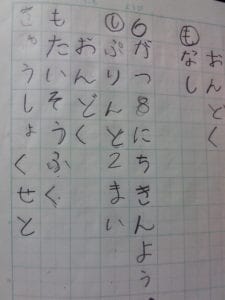 おんどく
もなし
6がつ8にちきんよう
しぷりんと2まい
おんどく
もたいそうふく
きゅうしょくせと